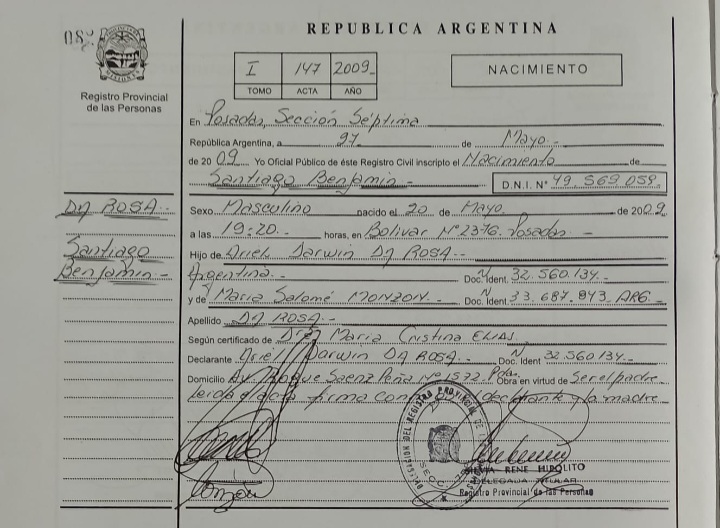 REPUBLICA ARGENTINA
I 147 2009
TOMO ACTA AÑO
NACIMIENTO
Registro Provincial
de las Personas
En Posadas, Sección Séptima
República Argentina, a 27 de Mayo
de 2009 Yo Oficial Público de éste Registro Civil inscripto el Nacimiento de
Santiago Benjamin D.N.I. N° 49.569.059
DA ROSA
Santiago
Benjamin
Sexo Masculino nacido el 20 de Mayo de 2009
a las 19:20 horas, en Bolivar N° 2376. Posadas
Hijo de Ariel Darwin DA ROSA
Argentina Doc. Ident. 32.560.134
y de Maria Salomé MONZON Doc. Ident. 33.687.943 ARG
Apellido DA ROSA
Según certificado de Dra. Maria Cristina ELIAS
Declarante Ariel Darwin DA ROSA Doc. Ident 32.560.134
Domicilio Av. Roque Saenz Peña N° 1572 Pdas. Obra en virtud de Ser el padre
Leida el acta firma con el declarante y la madre
DELEGACION DEL REGISTRO PROVINCIAL DE
SILVIA RENE HIPOLITO
DELEGADA TITULAR
Registro Provincial de las Personas